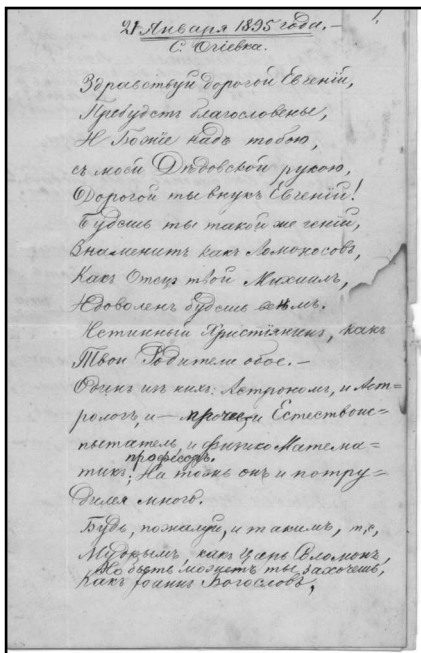 21 Января 1895 года.—
С. Огіевка.
Здравствуй дорогой Евгеній,
Пребудетъ благословенье,
И Божіе надъ тобою,
съ моей Дѣдовской рукою,
Дорогой ты внукъ Евгеній!
Будешь ты такой же геній,
Знаменитъ какъ Ломоносовъ,
Какъ Отецъ твой Михаилъ,
И доволенъ будешь всѣмъ.
Истинный Христіянинъ, какъ
Твои Родители обое.—
Одинъ изъ нихъ: Астрономъ, и Аст=
рологъ, и — прочее, и Естествоис=
пытатель и физико Матема=
профессоръ.
тикъ; На тожъ онъ и потру=
дился много.
Будь, пожалуй, и такимъ, т,е,
Мудрымъ какъ Царь Соломонъ,
Но быть можетъ ты захочешь,
Какъ Іоаннъ Богословъ,